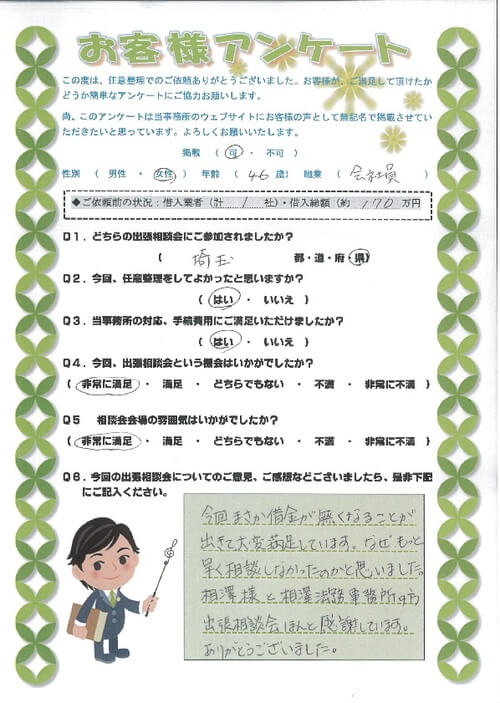 お客様アンケート
この度は、任意整理でのご依頼ありがとうございました。お客様が、ご満足して頂けたか
どうか簡単なアンケートにご協力お願いします。
尚、このアンケートは当事務所のウェブサイトにお客様の声として無記名で掲載させてい
ただきたいと思っています。よろしくお願いいたします。
掲載 （ 可 ・ 不可 ）
性別 （ 男性 ・ 女性 ） 年齢 （ 46 歳） 職業 （ 会社員 ）
◆ご依頼前の状況：借入業者（計 1 社）・借入総額（約 170 万円
Q1．どちらの出張相談会にご参加されましたか？
（ 埼玉 都・道・府・県）
Q2．今回、任意整理をしてよかったと思いますか？
（ はい ・ いいえ ）
Q3．当事務所の対応、手続費用にご満足いただけましたか？
（ はい ・ いいえ ）
Q4．今回、出張相談会という機会はいかがでしたか？
（ 非常に満足 ・ 満足 ・ どちらでもない ・ 不満 ・ 非常に不満 ）
Q5 相談会会場の雰囲気はいかがでしたか？
（ 非常に満足 ・ 満足 ・ どちらでもない ・ 不満 ・ 非常に不満 ）
Q6．今回の出張相談会についてのご意見、ご感想などございましたら、是非下記
にご記入ください。
今回まさか借金が無くなることが
出きて大変満足しています。なぜもっと
早く相談しなかったのかと思いました。
相澤様と相澤法務事務所の方
出張相談会ほんと感謝しています。
ありがとうございました。